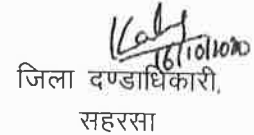 16/10/2020
जिला दण्डाधिकारी,
सहरसा